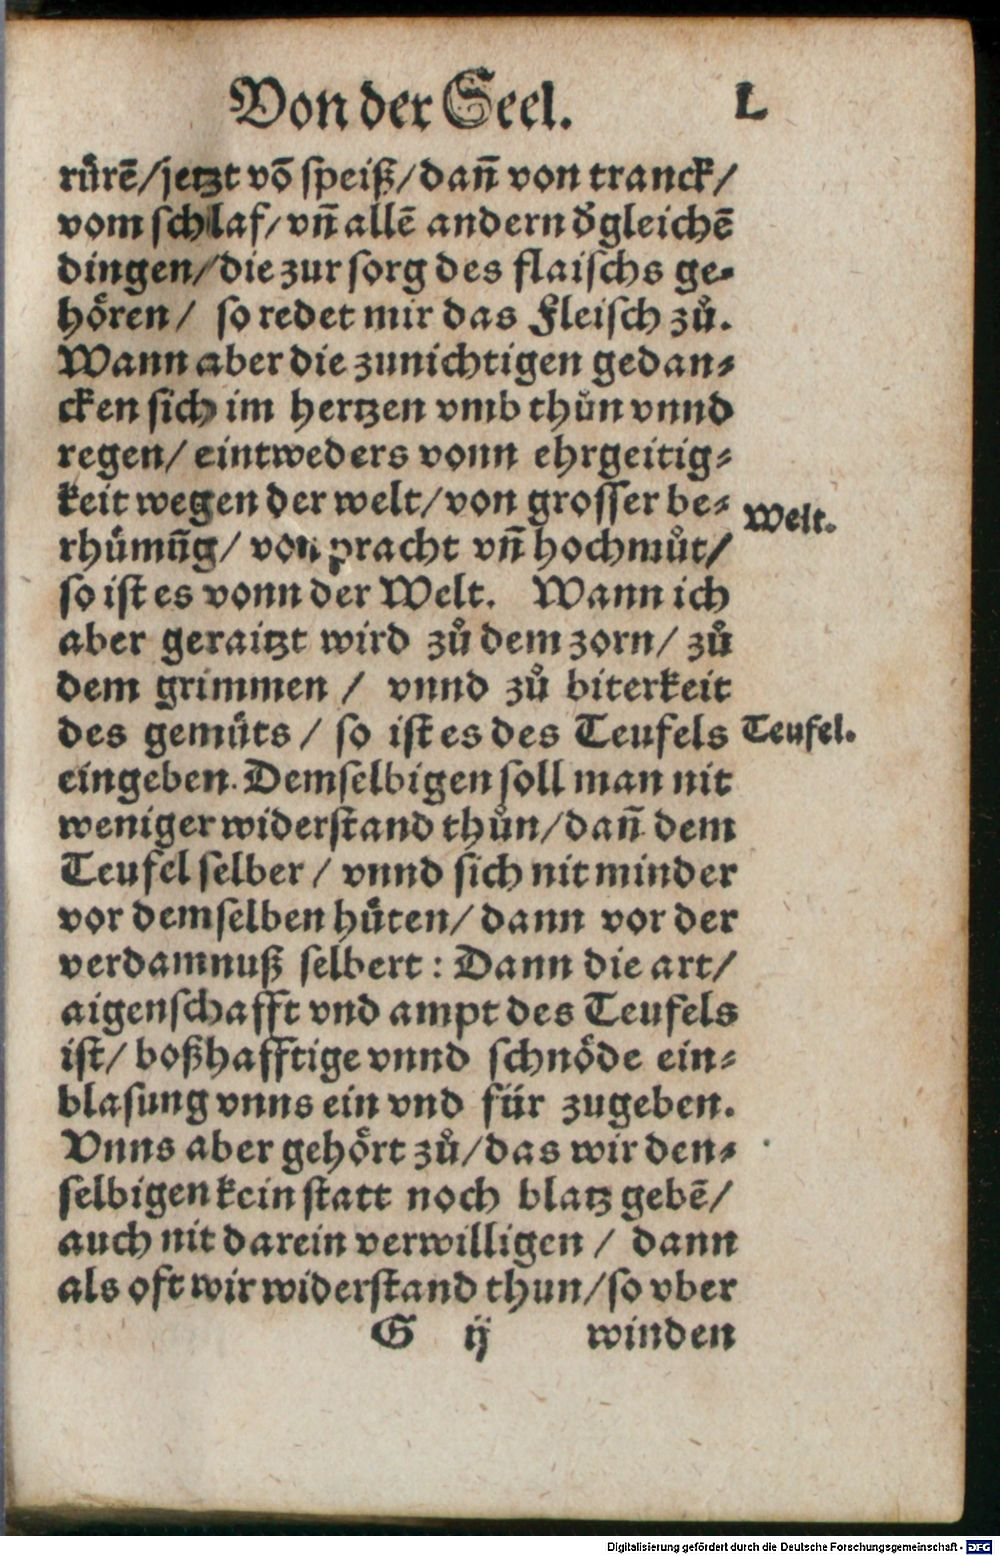 Von der Seel. L
rüré̃/jetzt võ speiß/dañ von tranck/
vom schlaf/vñ allẽ andern d̕gleichẽ
dingen/die zur sorg des flaischs ge-
hören/ so redet mir das Fleisch zů.
Wann aber die zunichtigen gedan-
cken sich im hertzen vmb thůn vnnd
regen/ eintweders vonn ehrgeitig-
keit wegen der welt/von grosser be-
Welt.
rhümũg/ von pracht vñ hochmůt/
so ist es vonn der Welt. Wann ich
aber geraitzt wird zů dem zorn/ zů
dem grimmen / vnnd zů biterkeit
des gemüts / so ist es des Teufels
Teufel.
eingeben. Demselbigen soll man nit
weniger widerstand thůn/dañ dem
Teufel selber / vnnd sich nit minder
vor demselben hüten/ dann vor der
verdamnuß selbert : Dann die art/
aigenschafft vnd ampt des Teufels
ist/ boßhafftige vnnd schnöde ein-
blasung vnns ein vnd für zugeben.
Vnns aber gehört zů/das wir den-
selbigen kein statt noch blatz gebẽ/
auch nit darein verwilligen / dann
als oft wir widerstand thun/so vber
G ij winden
Digitalisierung gefördert durch die Deutsche Forschungsgemeinschaft - DFG